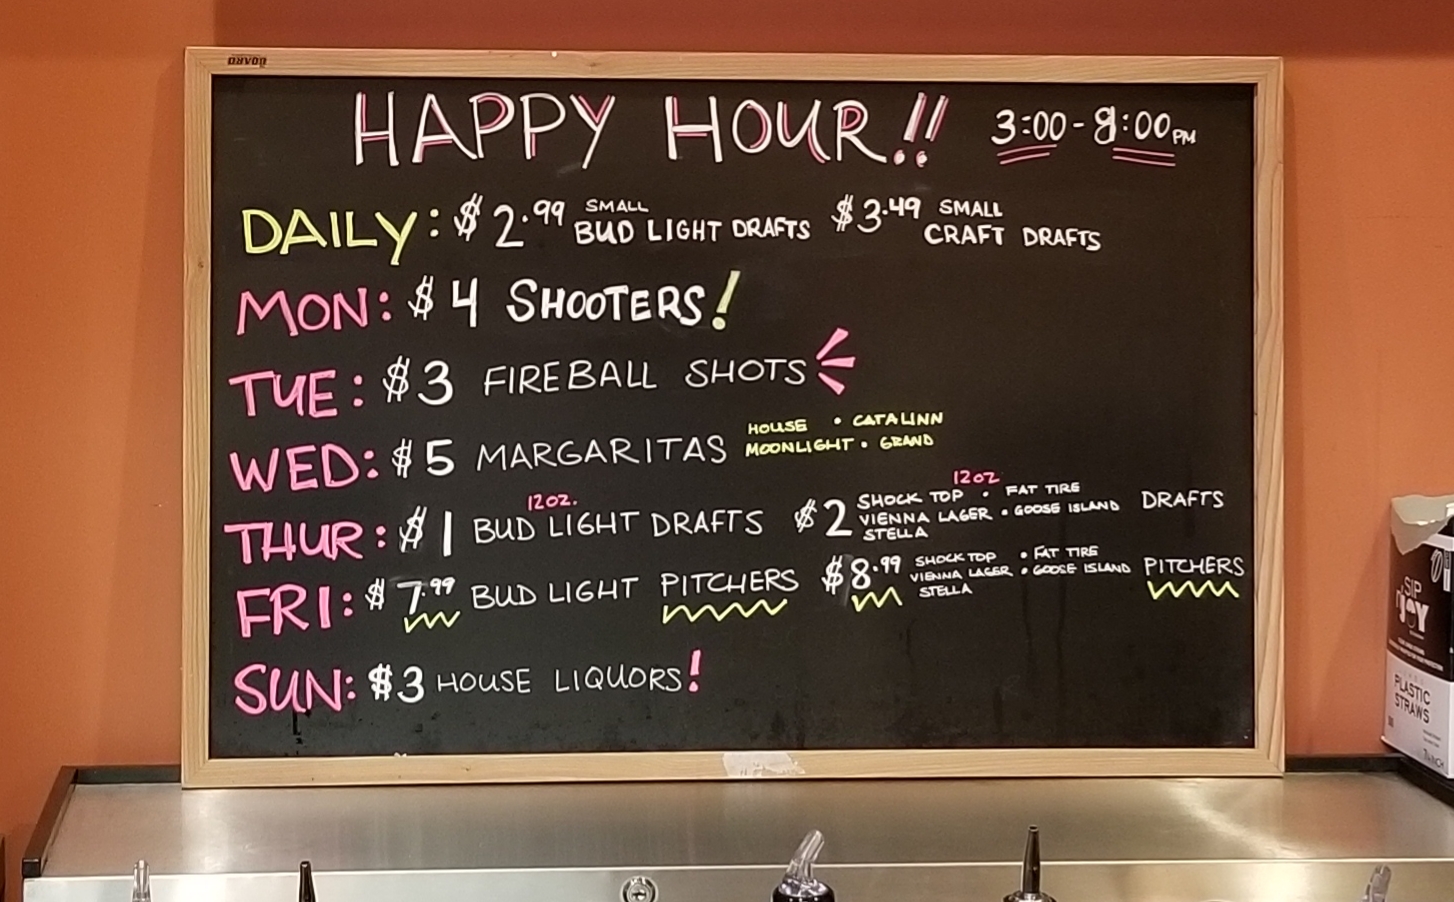 BOARD
HAPPY HOUR!! 3:00 - 8:00 PM
DAILY: $2.99 SMALL BUD LIGHT DRAFTS $3.49 SMALL CRAFT DRAFTS
MON: $4 SHOOTERS!
TUE: $3 FIREBALL SHOTS
WED: $5 MARGARITAS HOUSE • CATALINN MOONLIGHT • GRAND
THUR: $1 12OZ. BUD LIGHT DRAFTS $2 12OZ SHOCK TOP • FAT TIRE VIENNA LAGER • GOOSE ISLAND STELLA DRAFTS
FRI: $7.99 BUD LIGHT PITCHERS $8.99 SHOCK TOP • FAT TIRE VIENNA LAGER • GOOSE ISLAND STELLA PITCHERS
SUN: $3 HOUSE LIQUORS!
SIP
n'JOY
PLASTIC
STRAWS